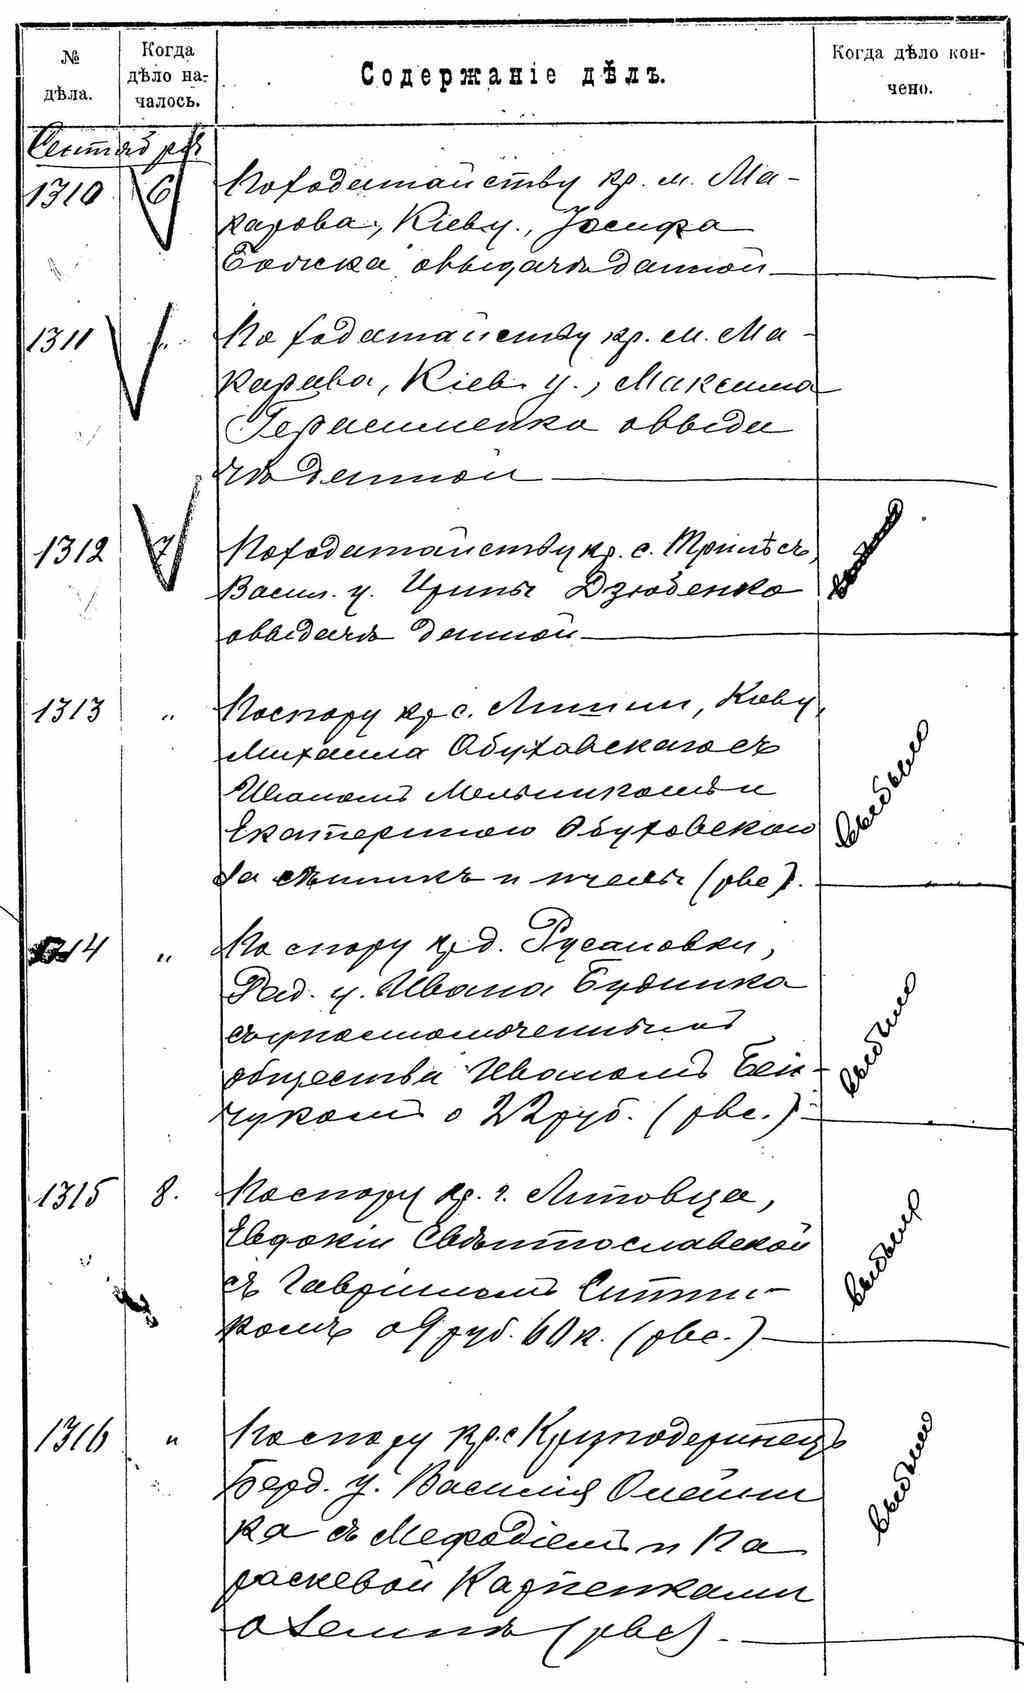 № дѣла.
Когда дѣло на-
чалось.
Содержаніе дѣлъ.
Когда дѣло кон-
чено.
Сентябрь
1310 6 По ходатайству кр. м. Ма-
карова, Кіев у., Іосифа
о выдачѣ данной
1311 " По ходатайству кр. м. Ма-
карова, Кіев. у., Максима
Герасименка о выда
чѣ данной
1312 7 По ходатайству кр. с. Трилѣсъ,
Васил. у. Ирины Дзюбенко
о выдачѣ данной
1313 " По спору кр с. Киев у,
Михаила Обуховскаго съ
Иваномъ Мельникомъ и
Екатериною Обуховскою
за и пчелы (рвс).
выбыло
1314 " По спору кр д. Русановки,
Рад. у. Ивана Будника
съ уполномоченнымъ
общества Иваномъ
чукомъ о 22 руб. (рвс.)
выбыло
1315 8. По спору кр. г. Литовца,
Евдокіи Свѣнтославской
съ Гавріиломъ
комъ о 9 руб. 60 к. (рвс.)
выбыло
1316 " По спору кр. с
Берд. у. Василія Олейни
ка съ Мефодіемъ и Па
раскевой Карпенками
о землѣ (рвс)
выбыло